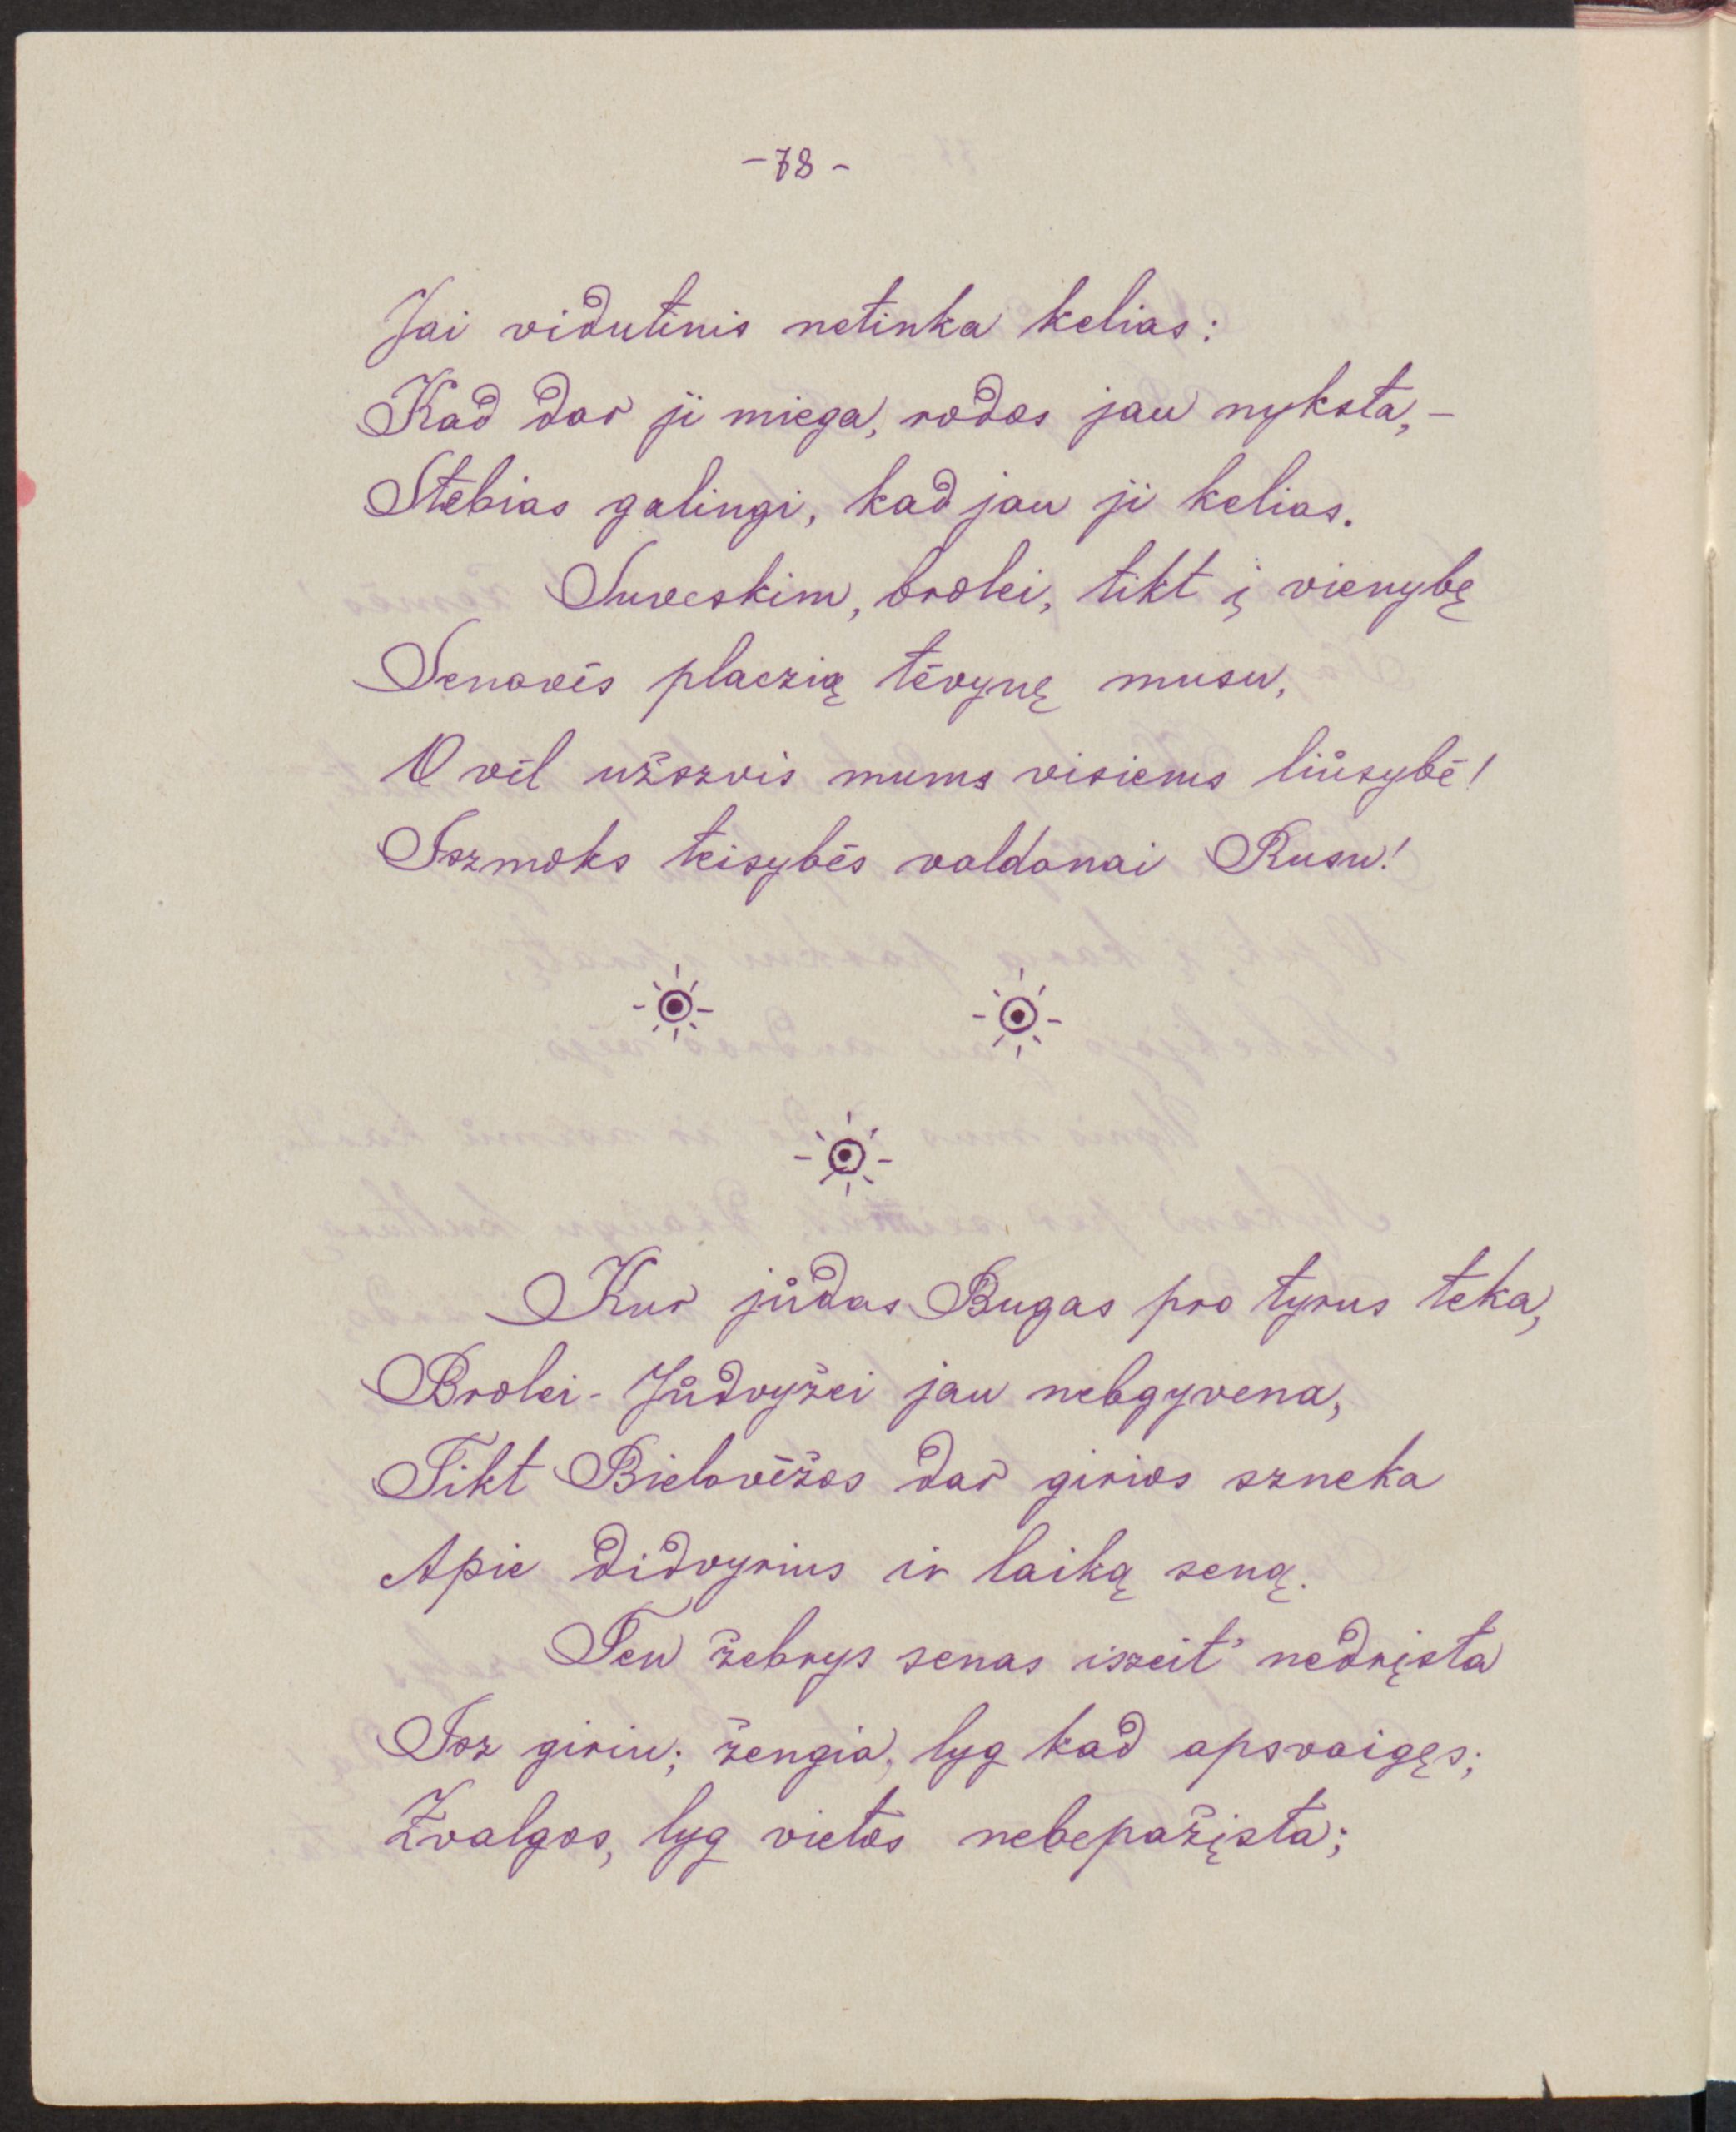 -78-
Jai vidutinis netinka kelias:
Kad dar ji miega, rodos jau nyksta,-
Stebias galingi, kad jau ji kelias.
Suveskim, brolei, tikt į vienybę
Senovės placzią tėvynę musu,
O vėl užszvis mums visiems liůsybė!
Iszmoks teisybės valdonai Rusu!
Kur jůdas Bugas pro tyrus teka,
Brolei-Jůdvyžei jau nebgyvena,
Tikt Bielovėžos dar girios szneka
Apie didvyrius ir laiką seną.
Ten žebrys senas iszeit' nedrįsta
Isz giriu; žengia, lyg kad apsvaigęs;
Žvalgos, lyg vietos nebepažįsta;